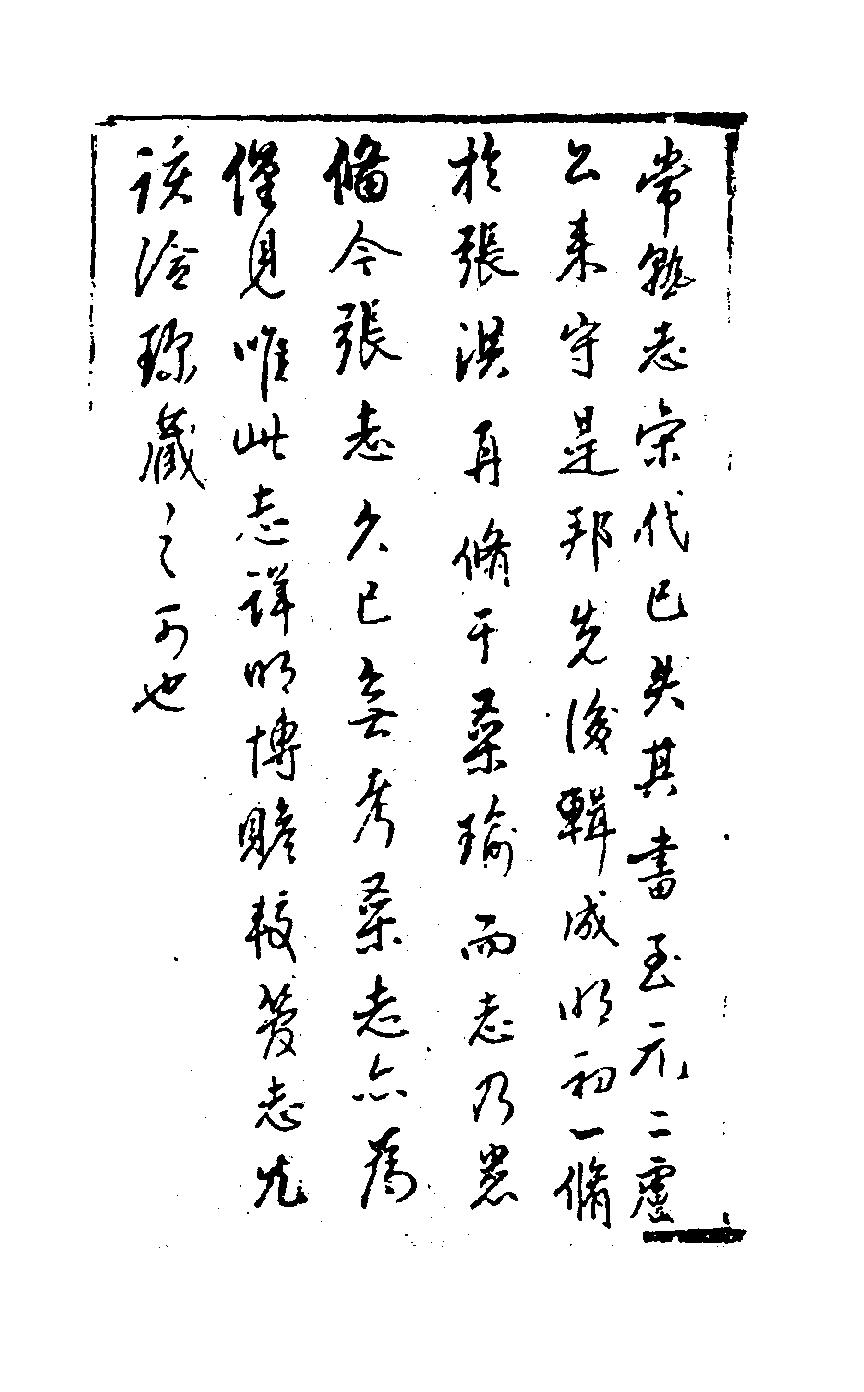 常熟志宋代已失其書至元二盧
公来守是邦先後輯成明初一脩
於張洪再脩于桑瑜而志乃思
備今張志久已無考桑志亦為
僅見唯此志詳明博贍較管志尤
該洽珎藏之可也